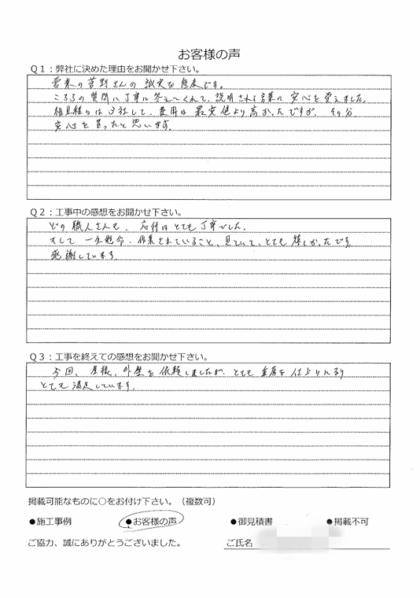 お客様の声
Q1：弊社に決めた理由をお聞かせ下さい。
営業の菅野さんの誠実な態度です。
こちらの質問に丁寧に答えてくれて、説明される言葉に安心を覚えました。
相見積りは3社して、費用は最安値より高かったですが、その分
安心を買ったと思います。
Q2：工事中の感想をお聞かせ下さい。
どの職人さんも、応対はとても丁寧でした。
そして一生懸命、作業されていること、見ていて、とても嬉しかったです。
感謝しています。
Q3：工事を終えての感想をお聞かせ下さい。
今回、屋根、外壁を依頼しましたが、とても 仕上りであり
とても満足しています。
掲載可能なものに○をお付け下さい。（複数可）
●施工事例 ●お客様の声 ●御見積書 ●掲載不可
ご協力、誠にありがとうございました。 ご氏名